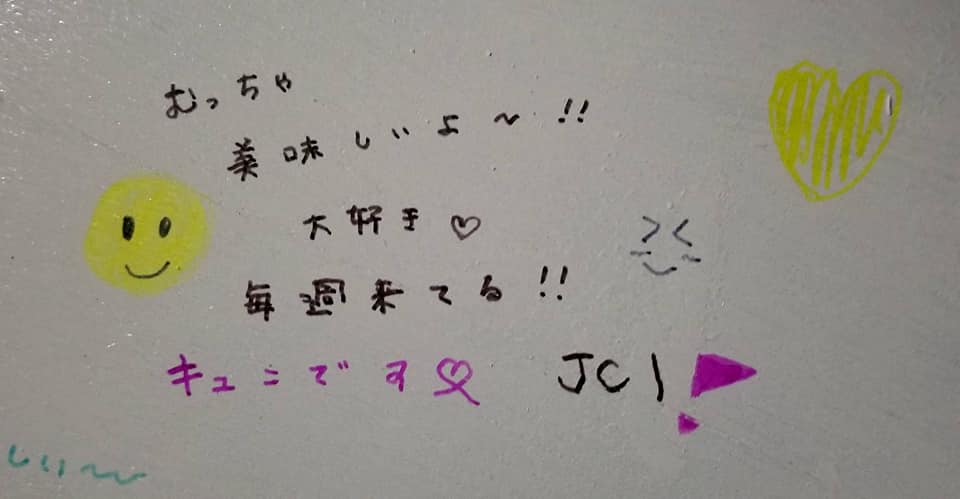 むっちゃ
美味しいよ～!!
大好き♡
毎週来てる!!
キュンです♡ JC1
しい～